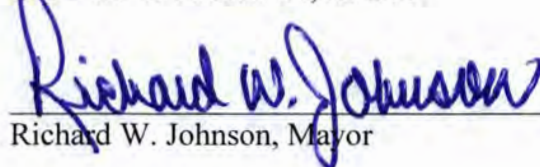 Richard W. Johnson
Richard W. Johnson, Mayor